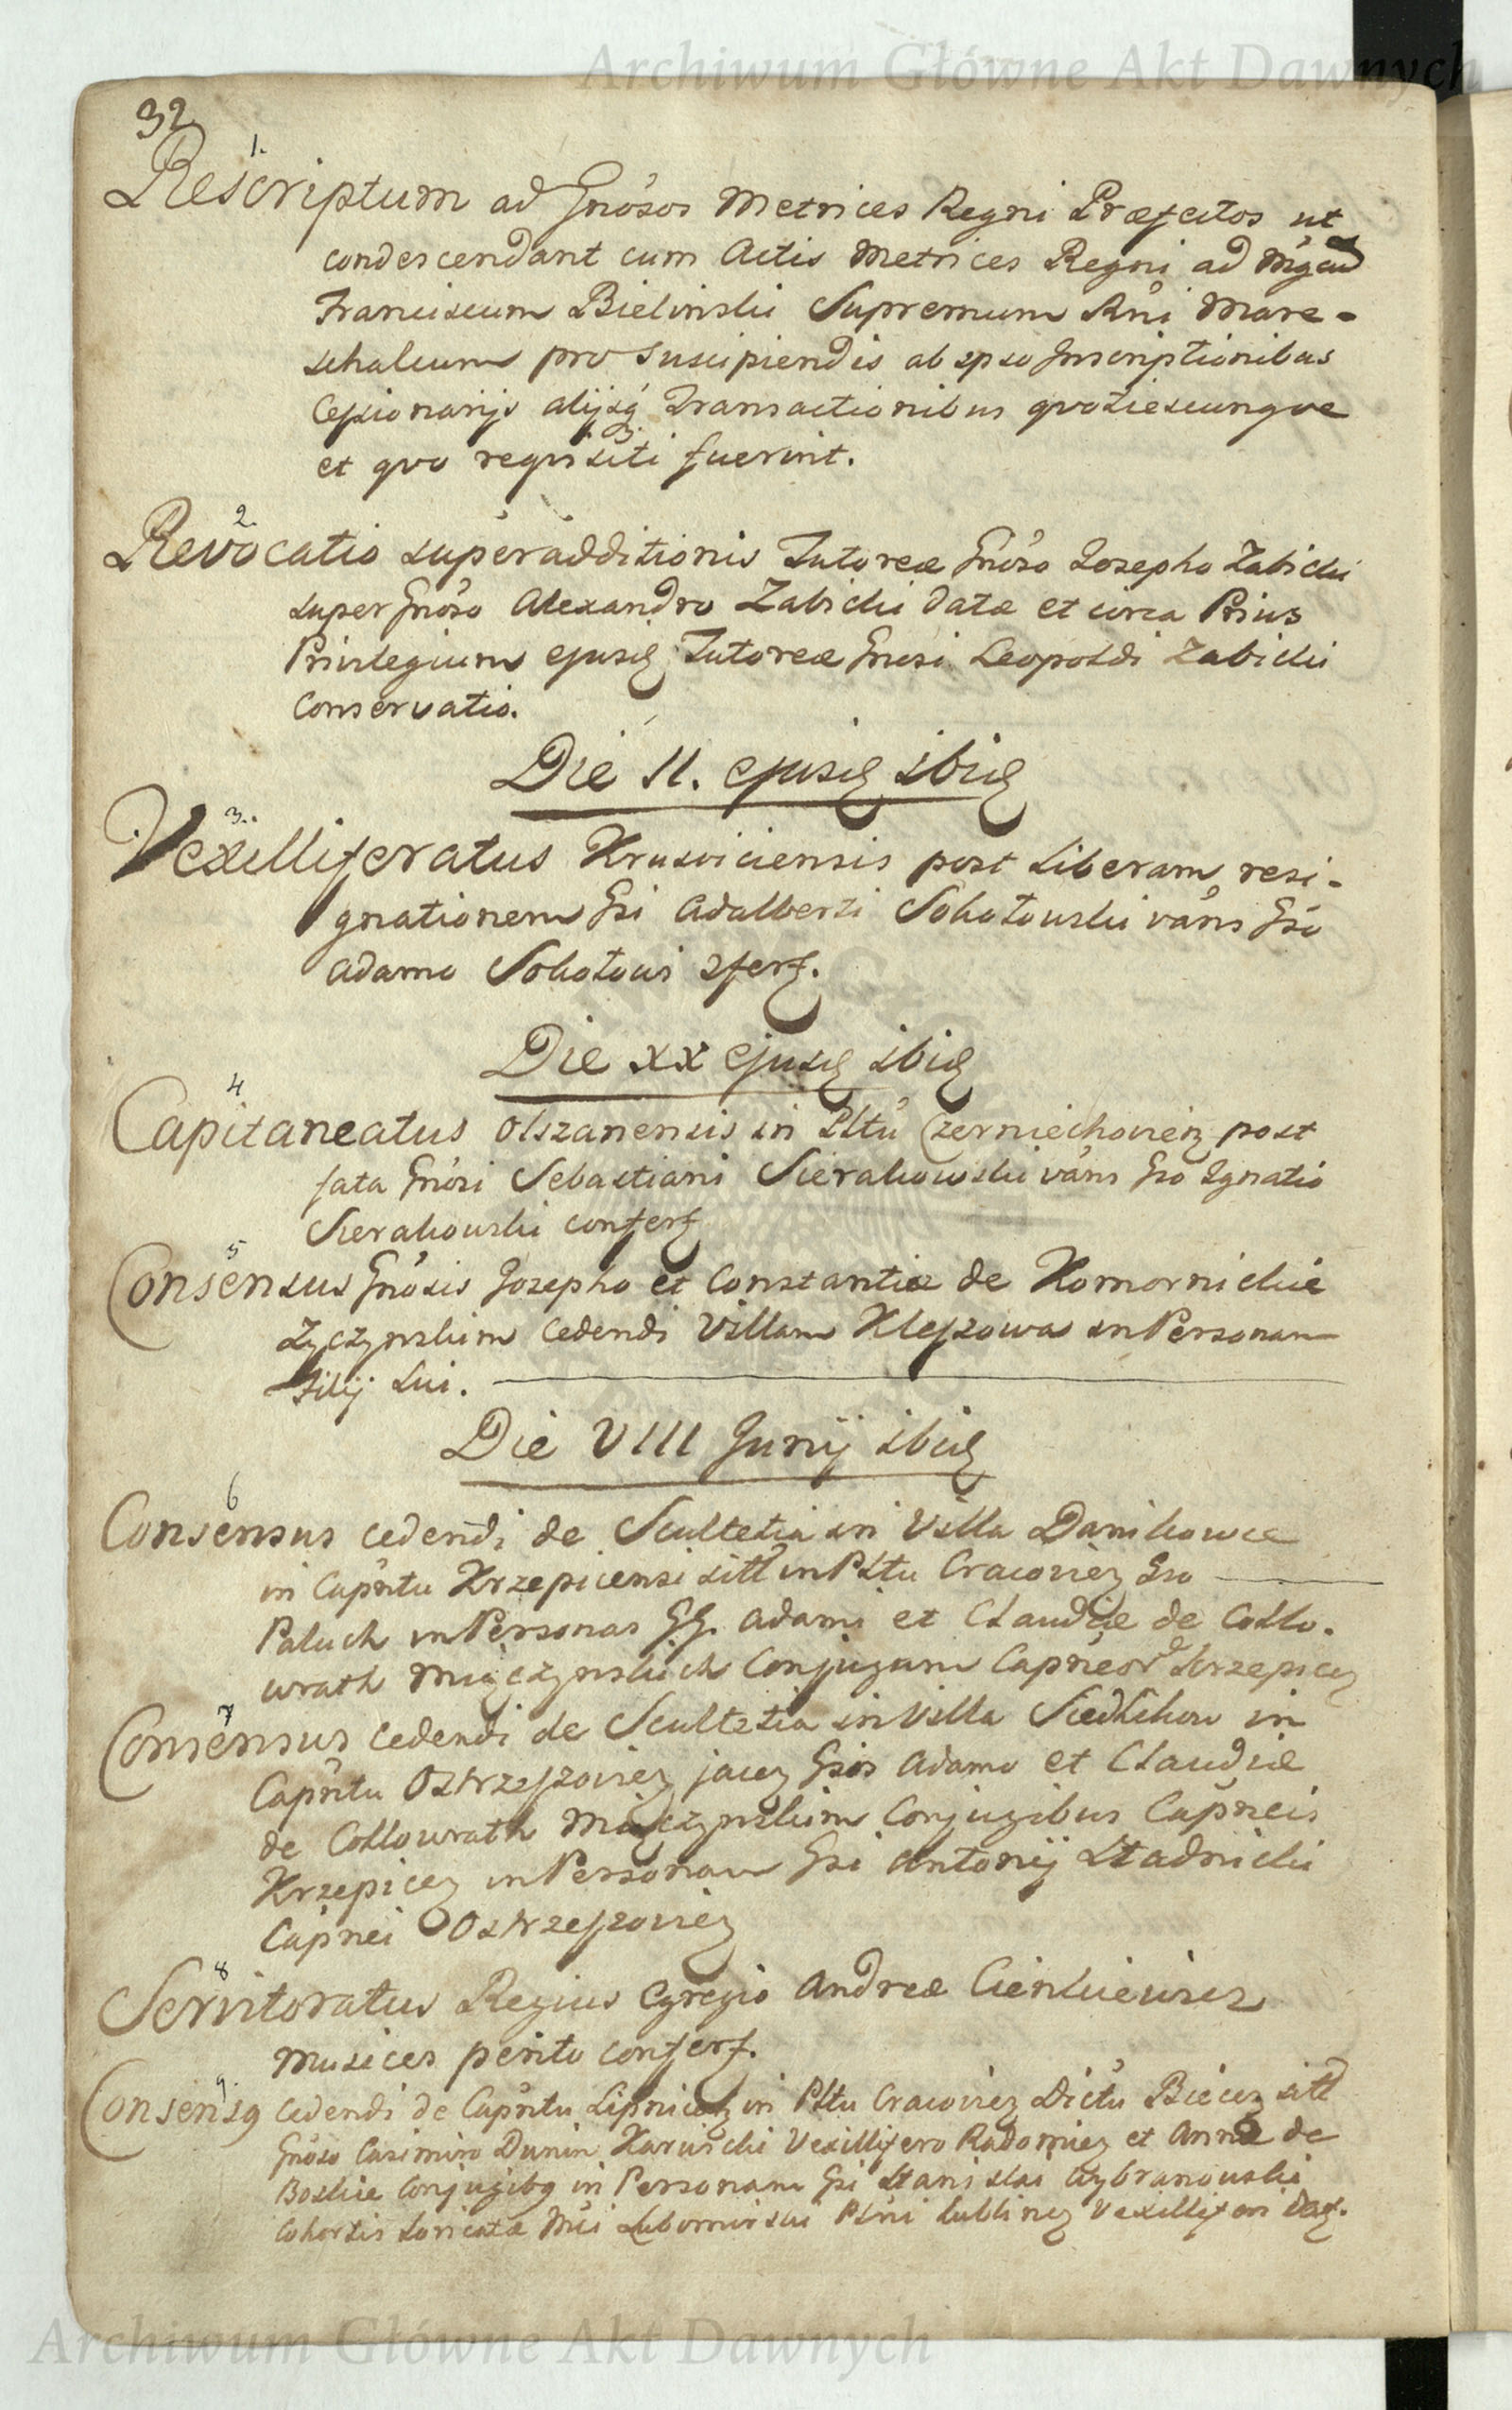 Archiwum Główne Akt Dawnych
32
1.
Rescriptum ad Gnosos Metrices Regni Præfectos ut
condescendant cum Actis Metrices Regni ad Mgcum
Franciscum Bielinski Supremum Rni Mare-
schalcum pro suscipiendis ab ipso Inscriptionibus
Cessionarijs alijsq Transactionibus quotiescunque
et quo requisiti fuerint.
2.
Revocatio superadditionis Tutoreæ Gnoso Josepho Zabicki
super Gnoso Alexandro Zabicki datæ et circa Prius
Privilegium ejusd Tutoreæ Gnosi Leopoldi Zabicki
Conservatio.
Die 11. ejusd ibid
3.
Vexilliferatus Krusviciensis post liberam resi-
gnationem Gsi Adalberti Sokołowski vans Gso
Adamo Sokołowi 2fert.
Die XX ejusd ibid
4
Capitaneatus Olszanensis in Pltu Czerniechovien post
fata Gnosi Sebastiani Sierakowski vans Gso Ignatio
Sierakowski confert
5
Consensus Gnosis Josepho et Constantiæ de Komornickie
Zyczynskim cedendi Villam Klessowa in Personam
Filij sui.
Die VIII Junij ibid
6
Consensus cedendi de Scultetia in Villa Danikowce
in Capntu Krzepicensi sitt in Pltu Cracovien Gso
Paluch in Personas GG. Adami et Claudiæ de Collo-
wrath Męczynskich Conjugum Capneor Krzepicen
7
Consensus cedendi de Scultetia in Villa Siedlikow in
Capntu Ostrzeszovien jacen Gsis Adamo et Claudiæ
de Collowrath Męczynskim Conjugibus Capneis
Krzepicen in Personam Gsi Antonij Stadnicki
Capnei Ostrzeszovien
8
Servitoratus Regius Egregio Andreæ Cienkiewicz
Musices perito confert.
9.
Consens9 cedendi de Capntu Lipnicen in Pltu Cracovien Dictu Biecen sitt
Gnoso Casimiro Dunin Karwicki Vexillifero Radomien et Annæ de
Boskie Conjugib9 in Personam Gsi Stanislai Wybranowski
Cohortis Loricatæ Mci Lubomirski Plni Lublinen Vexilliferi Dat.
Archiwum Główne Akt Dawnych